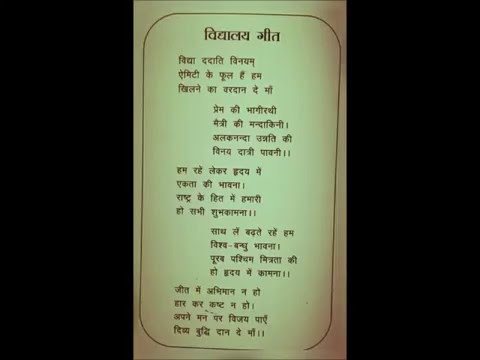 विद्यालय गीत
विद्या ददाति विनयम्
ऐमिटी के फूल हैं हम
खिलने का वरदान दे माँ
प्रेम की भागीरथी
मैत्री की मन्दाकिनी।
अलकनन्दा उन्नति की
विनय दात्री पावनी।।
हम रहें लेकर हृदय में
एकता की भावना।
राष्ट्र के हित में हमारी
हो सभी शुभकामना।।
साथ लें बढ़ते रहें हम
विश्व-बन्धु भावना।
पूरब पश्चिम मित्रता की
हो हृदय में कामना।।
जीत में अभिमान न हो
हार कर कष्ट न हो।
अपने मन पर विजय पाएँ
दिव्य बुद्धि दान दे माँ।।